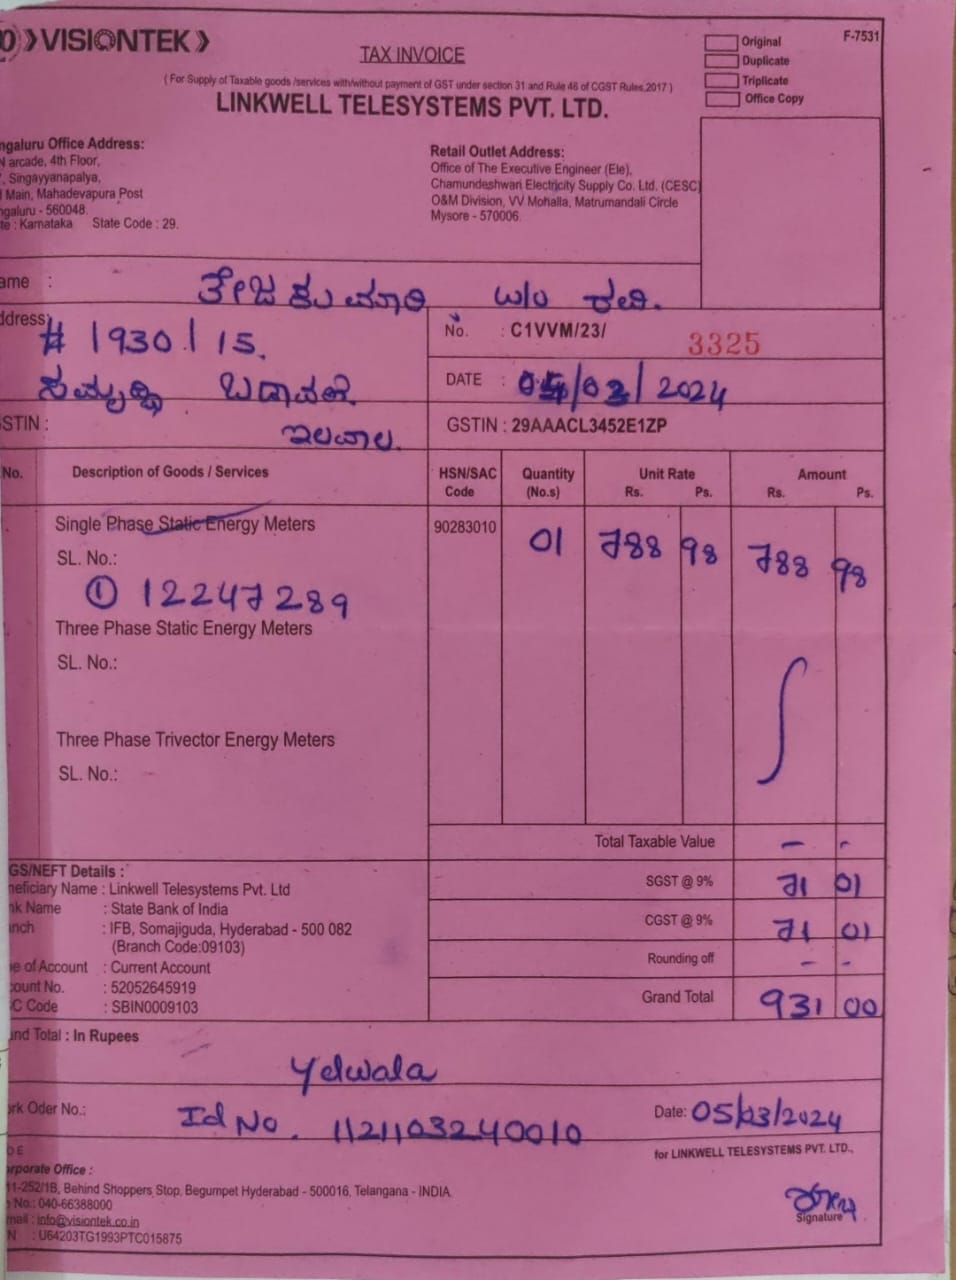 VISIONTEK
TAX INVOICE
Original
Duplicate
Triplicate
Office Copy
F-7531
( For Supply of Taxable goods /services with/without payment of GST under section 31 and Rule 46 of CGST Rules,2017 )
LINKWELL TELESYSTEMS PVT. LTD.
ngaluru Office Address:
arcade, 4th Floor,
Singayyanapalya,
Main, Mahadevapura Post
ngaluru - 560048.
te : Karnataka State Code : 29.
Retail Outlet Address:
Office of The Executive Engineer (Ele),
Chamundeshwari Electricity Supply Co. Ltd. (CESC)
O&M Division, VV Mohalla, Matrumandali Circle
Mysore - 570006.
ame : ತೇಜಕುಮಾರಿ w/o ರವಿ.
ddress: # 1930/15.
ಸಮೃದ್ಧಿ ಬಡಾವಣೆ
ಇಲವಾಲ.
No. : C1VVM/23/ 3325
DATE : /03/2024
STIN :
GSTIN : 29AAACL3452E1ZP
No. Description of Goods / Services HSN/SAC Code Quantity (No.s) Unit Rate Rs. Ps. Amount Rs. Ps.
Single Phase Static Energy Meters 90283010 01 788 98 788 98
SL. No.:
① 12247289
Three Phase Static Energy Meters
SL. No.:
Three Phase Trivector Energy Meters
SL. No.:
Total Taxable Value - -
SGST @ 9% 71 01
CGST @ 9% 71 01
Rounding off - -
Grand Total 931 00
GS/NEFT Details :
neficiary Name : Linkwell Telesystems Pvt. Ltd
nk Name : State Bank of India
nch : IFB, Somajiguda, Hyderabad - 500 082
(Branch Code:09103)
e of Account : Current Account
ount No. : 52052645919
C Code : SBIN0009103
und Total : In Rupees
Yelwala
ork Oder No.: Id No. 1121103240010
Date: 05/03/2024
for LINKWELL TELESYSTEMS PVT. LTD.,
orporate Office :
11-252/1B, Behind Shoppers Stop, Begumpet Hyderabad - 500016, Telangana - INDIA.
No.: 040-66388000
mail : info@visiontek.co.in
N : U64203TG1993PTC015875
Signature